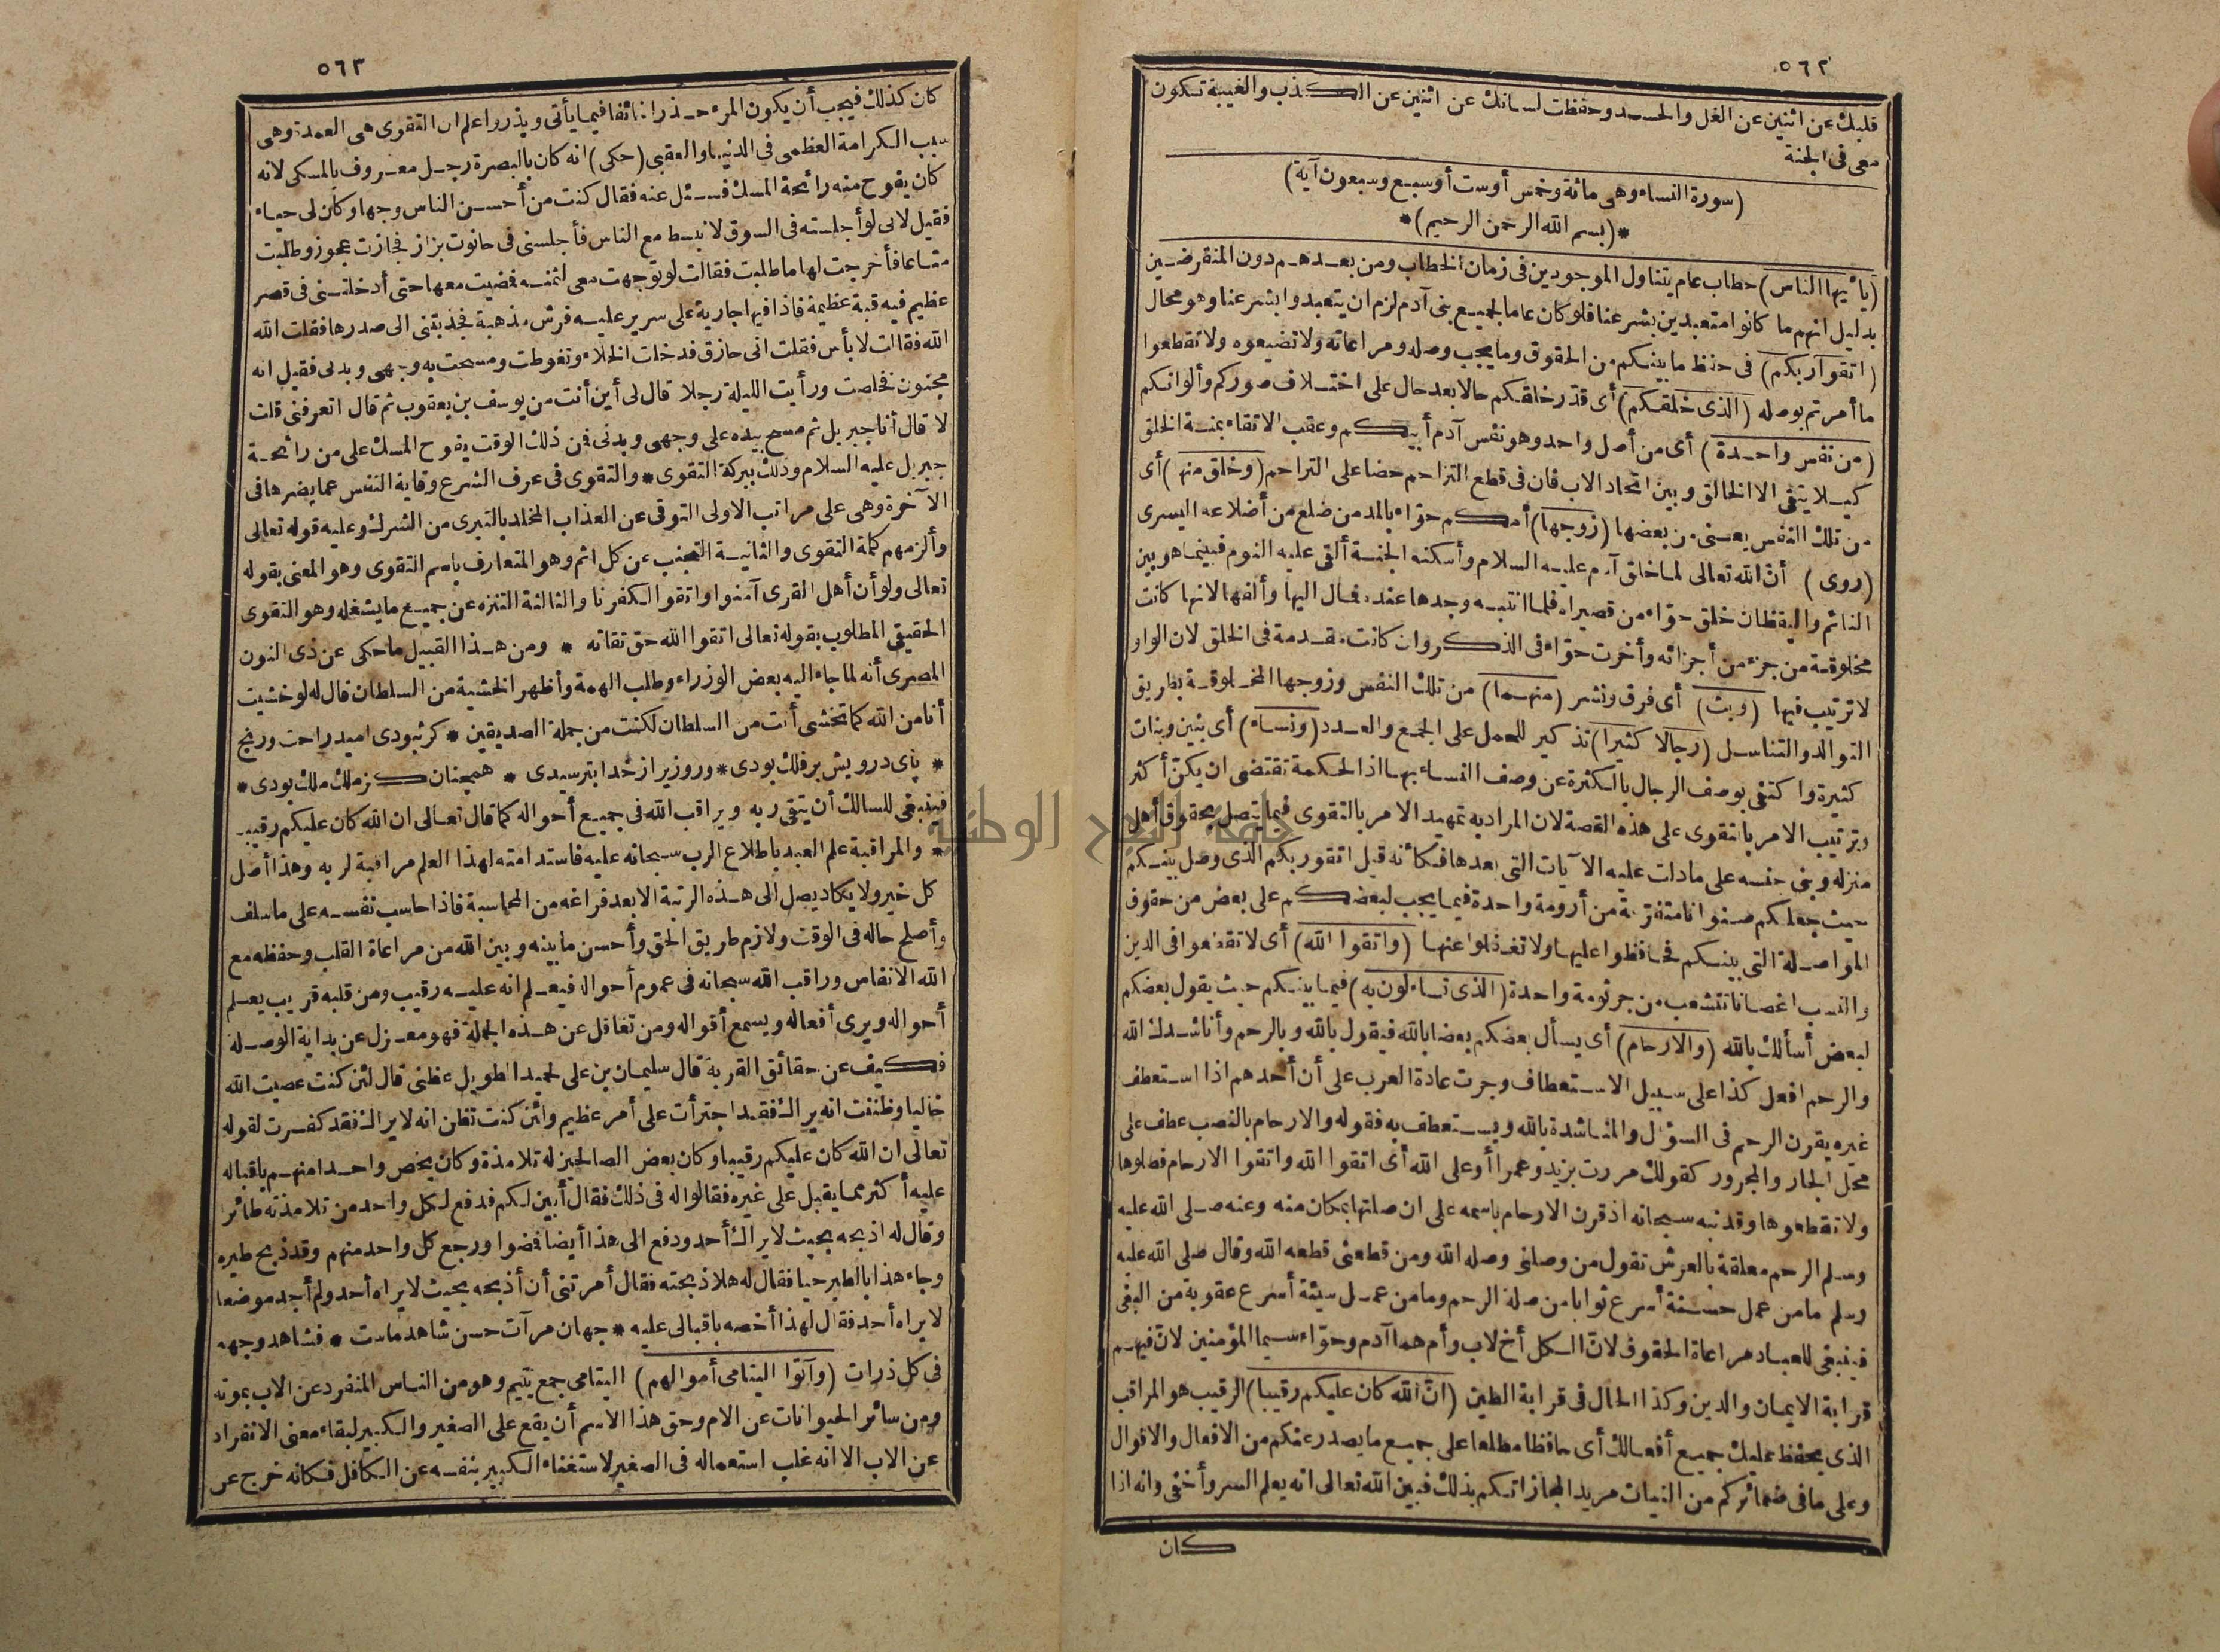 ٥٦٢
قلبك عن اثنين عن الغل والحسد وحفظت لسانك عن اثنين عن الكذب والغيبة تكون
معى فى الجنة
(سورة النساء وهى مائة وخمس أوست أوسبع وسبعون آية)
*(بسم الله الرحمن الرحيم)*
(ياأيها الناس) خطاب عام يتناول الموجودين فى زمان الخطاب ومن بعدهم دون المنقرضين
بدليل انهم ما كانوا متعبدين بشرعنا فلو كان عاما لجميع بنى آدم لزم ان يتعبدوا بشرعنا وهو محال
(اتقوا ربكم) فى حفظ ما بينكم من الحقوق وما يجب وصله ومراعاته ولا تضيعوه ولا تقطعوا
ما أمرتم بوصله (الذى خلقكم) أى قدر خلقكم حالا بعد حال على اختلاف صوركم وألوانكم
(من نفس واحدة) أى من أصل واحد وهو نفس آدم أبيكم وعقب الاتقاء بمنة الخلق
كيلا يتقى الا الخالق وبين اتحاد الاب فان فى قطع التزاحم حضا على التراحم (وخلق منها) أى
من تلك النفس يعنى من بعضها (زوجها) أمكم حواء بالمد من ضلع من أضلاعه اليسرى
(روى) أن الله تعالى لما خلق آدم عليه السلام وأسكنه الجنة ألقى عليه النوم فبينما هو بين
النائم واليقظان خلق حواء من قصيراه فلما انتبه وجدها عنده فمال اليها وألفها لانها كانت
مخلوقة من جزء من أجزائه وأخرت حواء فى الذكر وان كانت مقدمة فى الخلق لان الواو
لا ترتيب فيها (وبث) أى فرق ونشر (منهما) من تلك النفس وزوجها المخلوقة بطريق
التوالد والتناسل (رجالا كثيرا) تذكير للحمل على الجمع والعدد (ونساء) أى بنين وبنات
كثيرة واكتفى بوصف الرجال بالكثرة عن وصف النساء بها اذ الحكمة تقتضى ان يكن أكثر
وترتيب الامر بالتقوى على هذه القصة لان المراد به تمهيد الامر بالتقوى فيما يتصل بحقوق أهل
منزله وبنى جنسه على ما دلت عليه الآيات التى بعدها فكأنه قيل اتقوا ربكم الذى وصل بينكم
حيث جعلكم صنوانا متفرعة من أرومة واحدة فيما يجب لبعضكم على بعض من حقوق
المواصلة التى بينكم فحافظوا عليها ولا تغفلوا عنها (واتقوا الله) أى لا تقطعوا فى الدين
والنسب اغصانا تتشعب من جرثومة واحدة (الذى تساءلون به) فيما بينكم حيث يقول بعضكم
لبعض أسألك بالله (والارحام) أى يسأل بعضكم بعضا بالله فيقول بالله وبالرحم وأناشدك الله
والرحم افعل كذا على سبيل الاستعطاف وجرت عادة العرب على أن أحدهم اذا استعطف
غيره يقرن الرحم فى السؤال والمناشدة بالله ويستعطف به فقوله والارحام بالنصب عطف على
محل الجار والمجرور كقولك مررت بزيد وعمرا أو على الله أى اتقوا الله واتقوا الارحام فصلوها
ولا تقطعوها وقد نبه سبحانه اذ قرن الارحام باسمه على ان صلتها بمكان منه وعنه صلى الله عليه
وسلم الرحم معلقة بالعرش تقول من وصلنى وصله الله ومن قطعنى قطعه الله وقال صلى الله عليه
وسلم ما من عمل حسنة أسرع ثوابا من صلة الرحم وما من عمل سيئة أسرع عقوبة من البغى
فينبغى للعباد مراعاة الحقوق لان الكل أخ لاب وأم هما آدم وحواء سيما المؤمنين لان فيهم
قرابة الايمان والدين وكذا الحال فى قرابة الطين (ان الله كان عليكم رقيبا) الرقيب هو المراقب
الذى يحفظ عليك جميع أفعالك أى حافظا مطلعا على جميع ما يصدر عنكم من الافعال والاقوال
وعلى ما فى ضمائركم من النيات مريدا لمجازاتكم بذلك فبين الله تعالى انه يعلم السر وأخفى وانه اذا
كان
٥٦٣
كان كذلك فيجب أن يكون المرء حذرا خائفا فيما يأتى ويذر واعلم ان التقوى هى العمدة وهى
سبب الكرامة العظمى فى الدنيا والعقبى (حكى) انه كان بالبصرة رجل معروف بالمسكى لانه
كان يفوح منه رائحة المسك فسئل عنه فقال كنت من أحسن الناس وجها وكان لى حياء
فقيل لابى لو أجلسته فى السوق لانبسط مع الناس فأجلسنى فى حانوت بزاز فجازت عجوز وطلبت
متاعا فأخرجت لها ما طلبت فقالت لو توجهت معى لثمنه فضيت معها حتى أدخلتنى فى قصر
عظيم فيه قبة عظيمة فاذا فيها جارية على سرير عليه فرش مذهبة فجذبتنى الى صدرها فقلت الله
الله فقالت لا بأس فقلت انى حازق فدخلت الخلاء وتغوطت ومسحت به وجهى وبدنى فقيل انه
مجنون فخلصت ورأيت الليلة رجلا قال لى أين أنت من يوسف بن يعقوب ثم قال اتعرفنى قلت
لا قال أنا جبريل ثم مسح بيده على وجهى وبدنى فمن ذلك الوقت يفوح المسك على من رائحة
جبريل عليه السلام وذلك ببركة التقوى * والتقوى فى عرف الشرع وقاية النفس عما يضرها فى
الآخرة وهى على مراتب الاولى التوقى عن العذاب المخلد بالتبرى من الشرك وعليه قوله تعالى
وألزمهم كلمة التقوى والثانية التجنب عن كل اثم وهو المتعارف باسم التقوى وهو المعنى بقوله
تعالى ولو أن أهل القرى آمنوا واتقوا لكفرنا والثالثة التنزه عن جميع ما يشغله وهو التقوى
الحقيقى المطلوب بقوله تعالى اتقوا الله حق تقاته * ومن هذا القبيل ما حكى عن ذى النون
المصرى أنه لما جاء اليه بعض الوزراء وطلب الهمة وأظهر الخشية من السلطان قال له لو خشيت
أنا من الله كما تخشى أنت من السلطان لكنت من جملة الصديقين * كرنبودى اميد راحت ورنج
* پاى درويش بر فلك بودى * ور وزير از خدا بترسيدى * همچنان كز ملك ملك بودى *
فينبغى للسالك أن يتقى ربه ويراقب الله فى جميع أحواله كما قال تعالى ان الله كان عليكم رقيبا
* والمراقبة علم العبد باطلاع الرب سبحانه عليه فاستدامته لهذا العلم مراقبة لربه وهذا أصل
كل خير ولا يكاد يصل الى هذه الرتبة الا بعد فراغه من المحاسبة فاذا حاسب نفسه على ما سلف
وأصلح حاله فى الوقت ولازم طريق الحق وأحسن ما بينه وبين الله من مراعاة القلب وحفظه مع
الله الانفاس وراقب الله سبحانه فى عموم أحواله فيعلم انه عليه رقيب ومن قلبه قريب يعلم
أحواله ويرى أفعاله ويسمع أقواله ومن تغافل عن هذه الجملة فهو معزل عن بداية الوصلة
فكيف عن حقائق القربة قال سليمان بن على لحميد الطويل عظنى قال لئن كنت عصيت الله
خاليا وظننت انه يراك فقد اجترأت على أمر عظيم ولئن كنت تظن انه لا يراك فقد كفرت لقوله
تعالى ان الله كان عليكم رقيبا وكان بعض الصالحين له تلامذة وكان يخص واحدا منهم باقباله
عليه أكثر مما يقبل على غيره فقالوا له فى ذلك فقال أبين لكم فدفع لكل واحد من تلامذته طائرا
وقال له اذبحه بحيث لا يراك أحد ودفع الى هذا أيضا فضوا ورجع كل واحد منهم وقد ذبح طيره
وجاء هذا بالطير حيا فقال له هلا ذبحته فقال أمرتنى أن أذبحه بحيث لا يراه أحد ولم أجد موضعا
لا يراه أحد فقال لهذا أخصه باقبالى عليه * جهان مرآت حسن شاهد ماست * فشاهد وجهه
فى كل ذرات (وآتوا اليتامى أموالهم) اليتامى جمع يتيم وهو من الناس المنفرد عن الاب بموته
ومن سائر الحيوانات عن الام وحق هذا الاسم أن يقع على الصغير والكبير لبقاء معنى الانفراد
عن الاب الا انه غلب استعماله فى الصغير لاستغناء الكبير بنفسه عن الكافل فكانه خرج عن
جامعة النجاح الوطنية